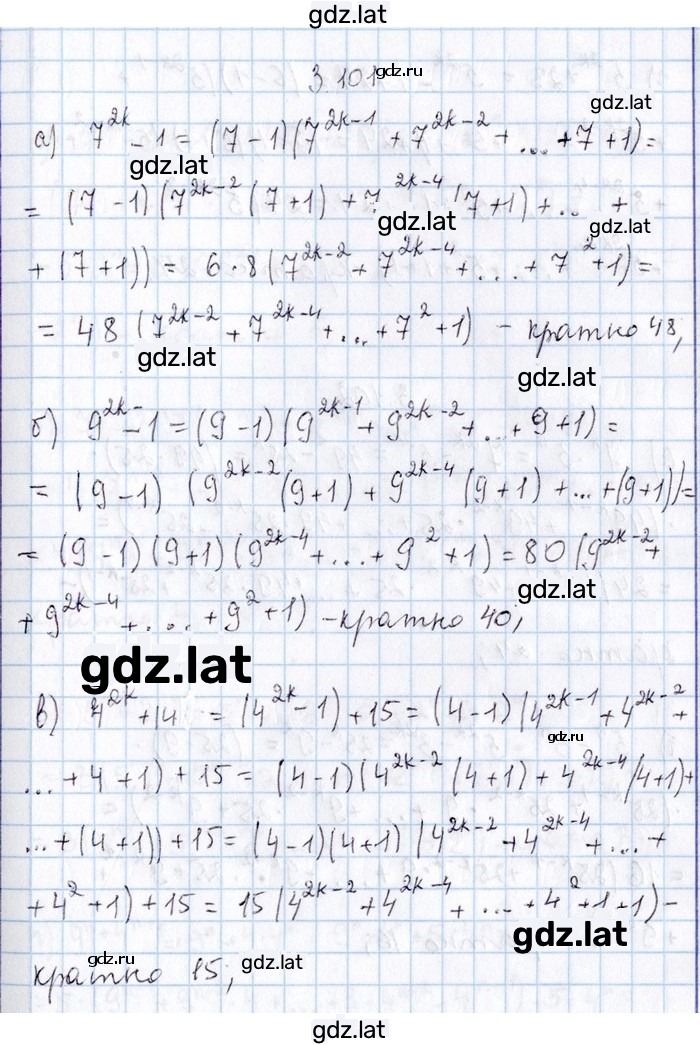 gdz.lat
3.101
gdz.ru
gdz.lat
а) 7^{2k} - 1 = (7-1)(7^{2k-1} + 7^{2k-2} + ... + 7 + 1) =
gdz.lat
= (7-1)(7^{2k-2}(7+1) + 7^{2k-4}(7+1) + ... +
gdz.lat
gdz.lat
+ (7+1)) = 6·8(7^{2k-2} + 7^{2k-4} + ... + 7^2 + 1) =
= 48(7^{2k-2} + 7^{2k-4} + ... + 7^2 + 1) - кратно 48;
gdz.lat
gdz.lat
б) 9^{2k} - 1 = (9-1)(9^{2k-1} + 9^{2k-2} + ... + 9 + 1) =
= (9-1) (9^{2k-2}(9+1) + 9^{2k-4}(9+1) + ... + (9+1)) =
= (9-1)(9+1)(9^{2k-4} + ... + 9^2 + 1) = 80(9^{2k-2} +
gdz.lat
+ 9^{2k-4} + ... + 9^2 + 1) - кратно 40;
gdz.lat
в) 4^{2k} + 14 = (4^{2k} - 1) + 15 = (4-1)(4^{2k-1} + 4^{2k-2} +
gdz.ru
... + 4 + 1) + 15 = (4-1)(4^{2k-2}(4+1) + 4^{2k-4}(4+1) +
... + (4+1)) + 15 = (4-1)(4+1)(4^{2k-2} + 4^{2k-4} + ... +
+ 4^2 + 1) + 15 = 15(4^{2k-2} + 4^{2k-4} + ... + 4^2 + 1 + 1) -
gdz.lat
gdz.ru
кратно 15;
gdz.lat
gdz.lat